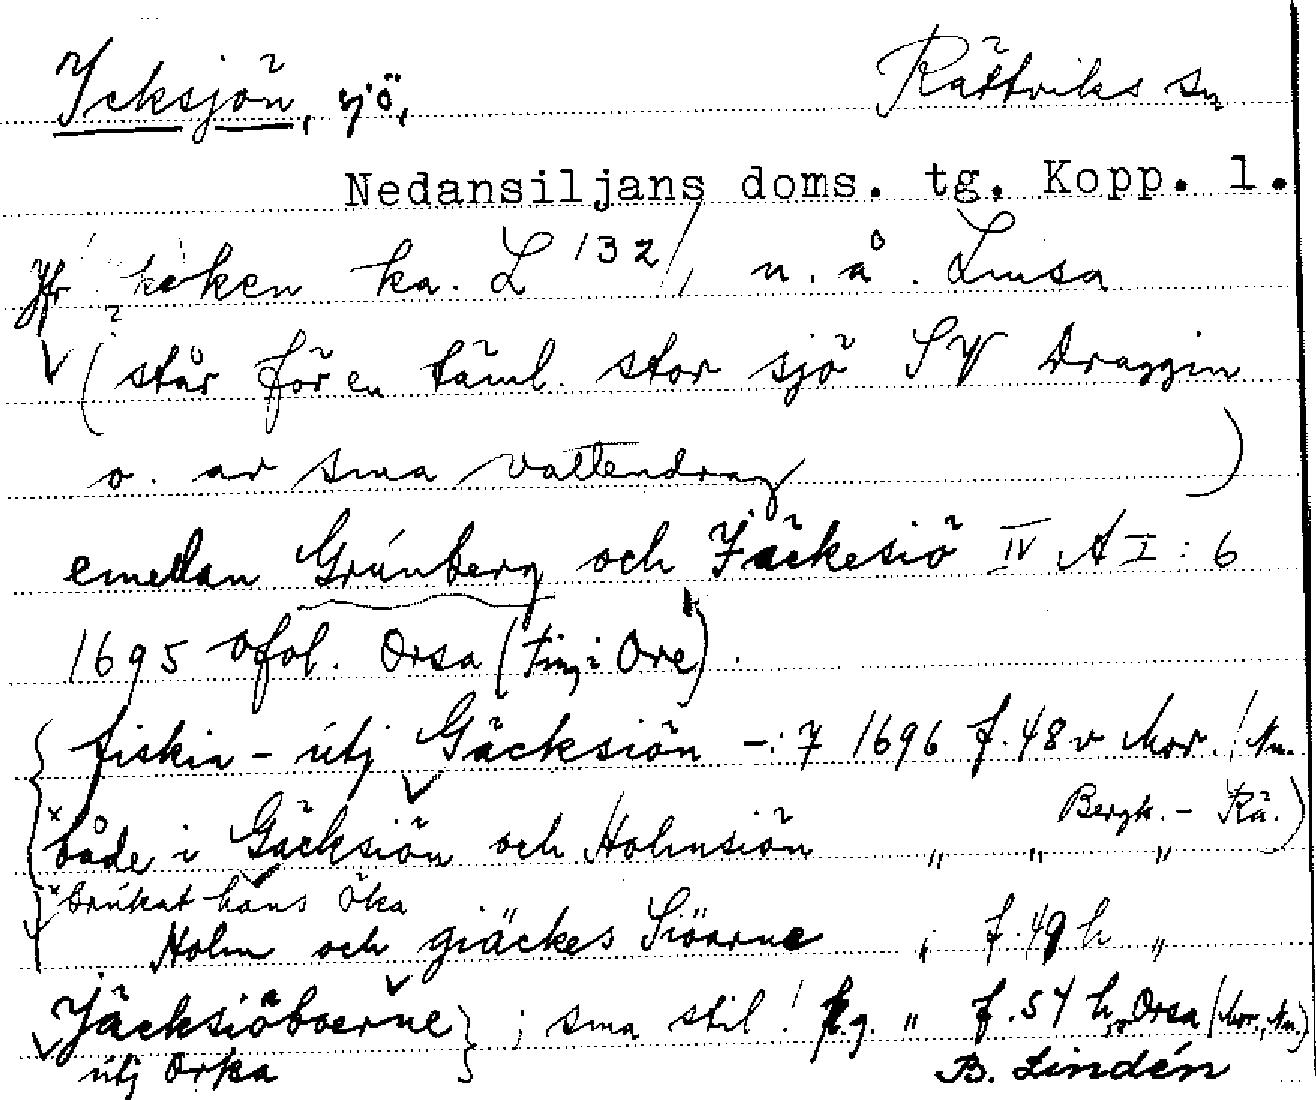 Icksjön, sjö, Rättviks sn
Nedansiljans doms. tg. Kopp. l.
Jfr ka. L 132/, n. å. Limsa
(står för en täml. stor sjö SV Draggin
o. av sma vattendrag )
emellan Grúnberg och Jäckesiö IV A I : 6
1695 Orsa (ting i Ore).
fiskia - útj Gäcksiön -:7 1696 f. 48 v Mor. /
Bergk. - Rä.)
både i Gäcksiön och Holmsiön " " "
brúkat hans öka
Holm och giäckes Siöarne " f. 49 h "
Jäcksiöboerne } ; sma stil! " f. 54 h, Orsa
útj Orka B. Lindén